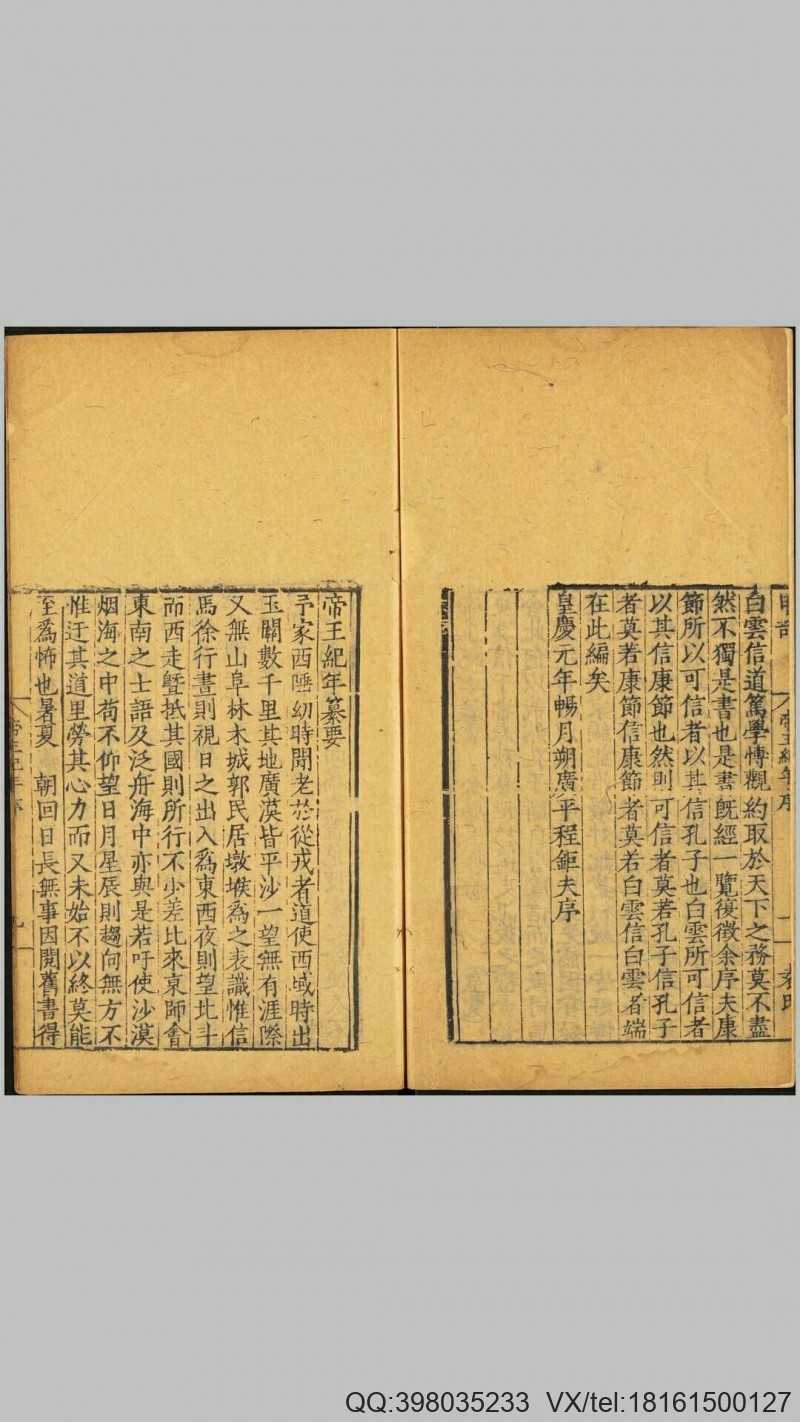 白雲信道篤學博觀約取於天下之務莫不盡
然不獨是書也是書既經一覽復徵余序夫康
節所以可信者以其信孔子也白雲所可信者
以其信康節也然則可信者莫若孔子信孔子
者莫若康節信康節者莫若白雲信白雲者端
在此編矣
皇慶元年暢月朔廣平程鉅夫序
帝王紀年纂要
予家西陲幼時聞老於從戎者道使西域時出
玉關數千里其地廣漠皆平沙一望無有涯際
又無山阜林木城郭民居墩堠為之表識惟信
馬徐行晝則視日之出入為東西夜則望北斗
而西走曁抵其國則所行不少差比來京師會
東南之士語及泛舟海中亦與是若吁使沙漠
烟海之中苟不仰望日月星辰則趨向無方不
惟迂其道里勞其心力而又未始不以終莫能
至為怖也暑夏 朝回日長無事因閱舊書得
QQ:398035233 VX/tel:18161500127